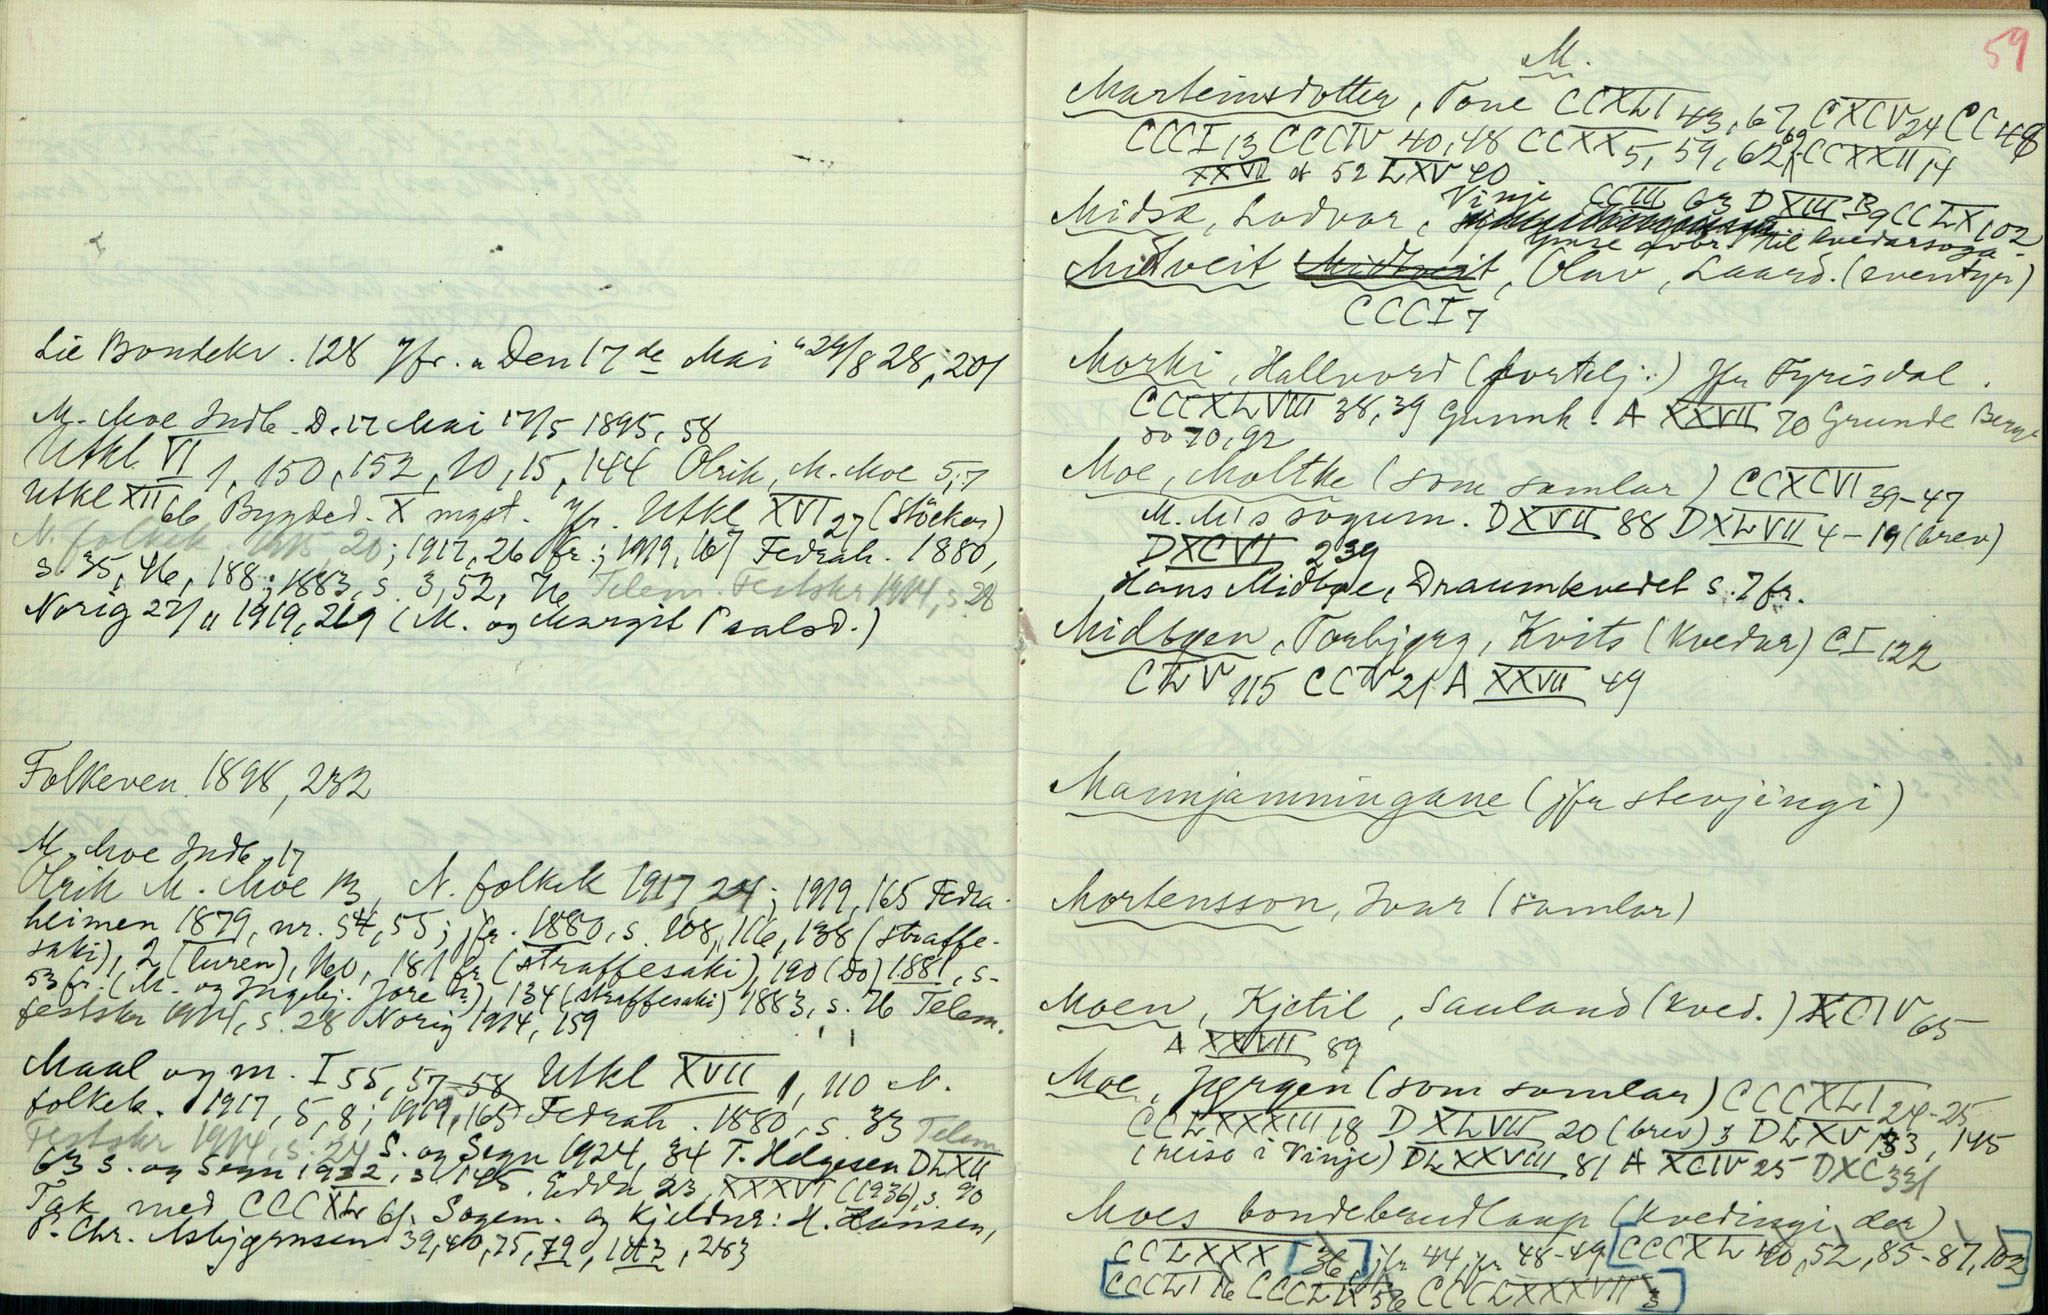 Lie Bondekr. 128 jfr. "Den 17de Mai" 24/8 28, 201
M. Moe Indb. D. 17 Mai 17/5 1895, 58
Utkl VI 1, 150, 152, 10, 15, 144 Olrik, M. Moe 5, 7
Utkl XII 66 Bygded. X mgst. jfr. Utkl XVI 27 (Støckes)
N. folkek. 1915 20; 1917, 26 fr; 1919, 167 Fedrah. 1880,
s 35, 46, 188; 1883, s. 3, 52, 76 Telem. Festskr 1914, s. 28
Norig 27/11 1919, 269 (M. og Margit Paalsd.)
Folkeven. 1898, 232
M. Moe Indb. 17
Olrik M. Moe 13, N. folkek 1917 24; 1919, 165 Fedra-
heimen 1879, nr. 54, 55; jfr. 1880, s. 108, 116, 138 (straffe-
saki), 2 (turen), 160, 181 fr (straffesaki), 190 (do) 1881, s.
53 fr. (M. og Ingebj. Jore), 134 (straffesaki) 1883, s. 76 Telem.
festskr 1914, s. 28 Norig 1914, 159
Maal og m. I 55, 57-58 Utkl XVII 1, 110 N.
folkek. 1917, 5, 8; 1919, 165 Fedrah. 1880, s. 33 Telem
Festskr 1914, s. 24 S. og Segn 1924, 34 T. Helgesen DLXII
63 S. og Segn 1932, s. 145. Edda 23 XXXVI (1936), s. 90
Tak med CCCXL 61. Sogem. og Kjeldur: H. Hansen,
P. Chr. Asbjørnsen 39, 40, 75, 79, 143, 283
59
M.
Marteinsdotter, Tone CCXLI 43, 67, CXCV 24 CC 48
CCCI, 13 CCCIV 40, 48 CCXX 5, 59, 62, 69 CCXXII 14
XXVII 52 LXV 90
Midsk, Lodvar, Vinje CCIII 63 DXIII 39 CCLX 102
til kvedarsoga
Mitveit, Olav, Laard. (eventyr)
CCCI 7
Morki, Hallvord (fortelj.) Jfr Fyrisdal.
CCCXLVIII 38, 39 Gunnh. A XXVII 70 Grunde Berge
do 70, 92
Moe, Moltke (som samlar) CCXCVI 39-47
M. M.s sogum. DXVII 88 DXLVII 4-19 (brev)
DXCVI 239
Hans Midbøe, Draumkvedet s. 7 fr.
Midbøen, Torbjørg, Kvits (Kvedar) CI 122
CLV 115 CCIV 21 A XXVII 49
Mannjamningane (jfr stevjingi)
Mortensson, Ivar (samlar)
Moen, Kjetil, Sauland (kved.) XCIV 65
A XXVII 89
Moe, Jørgen (som samlar) CCCXLI 24-25
CCLXXXIII 18 DXLVII 20 (brev) 3 DLXV 133, 145
(reiso i Vinje) DLXXVIII 81 A XCIV 25 DXC 331
Moes bondebrudlaup (kvedingi der)
CCLXXX 36 jfr 44, jfr 48-49 CCCXL 40, 52, 85-87, 102
CCCLI 16 CCCLIX 56 CCCLXXXVII 3